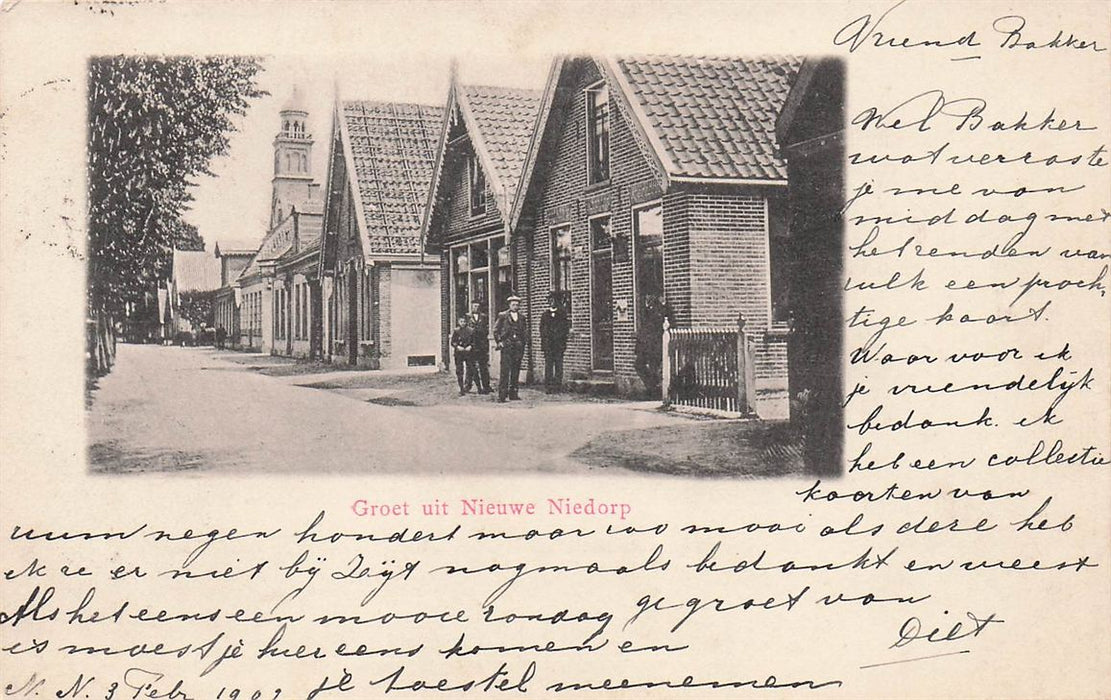 Vriend Bakker
Wel Bakker
wat verraste
je me van
middag met
het zenden van
zulk een prach-
tige kaart.
Waar voor ik
je vriendelijk
bedank. ik
heb een collectie
kaarten van
Groet uit Nieuwe Niedorp
ruim negen honderd maar zoo mooi als deze heb
ik ze er niet bij Zijt nogmaals bedankt en weest
gegroet van
Diet
Als het eens een mooie zondag
is moest je hier eens komen en
je toestel meenemen
N. N. 3 Febr 1902